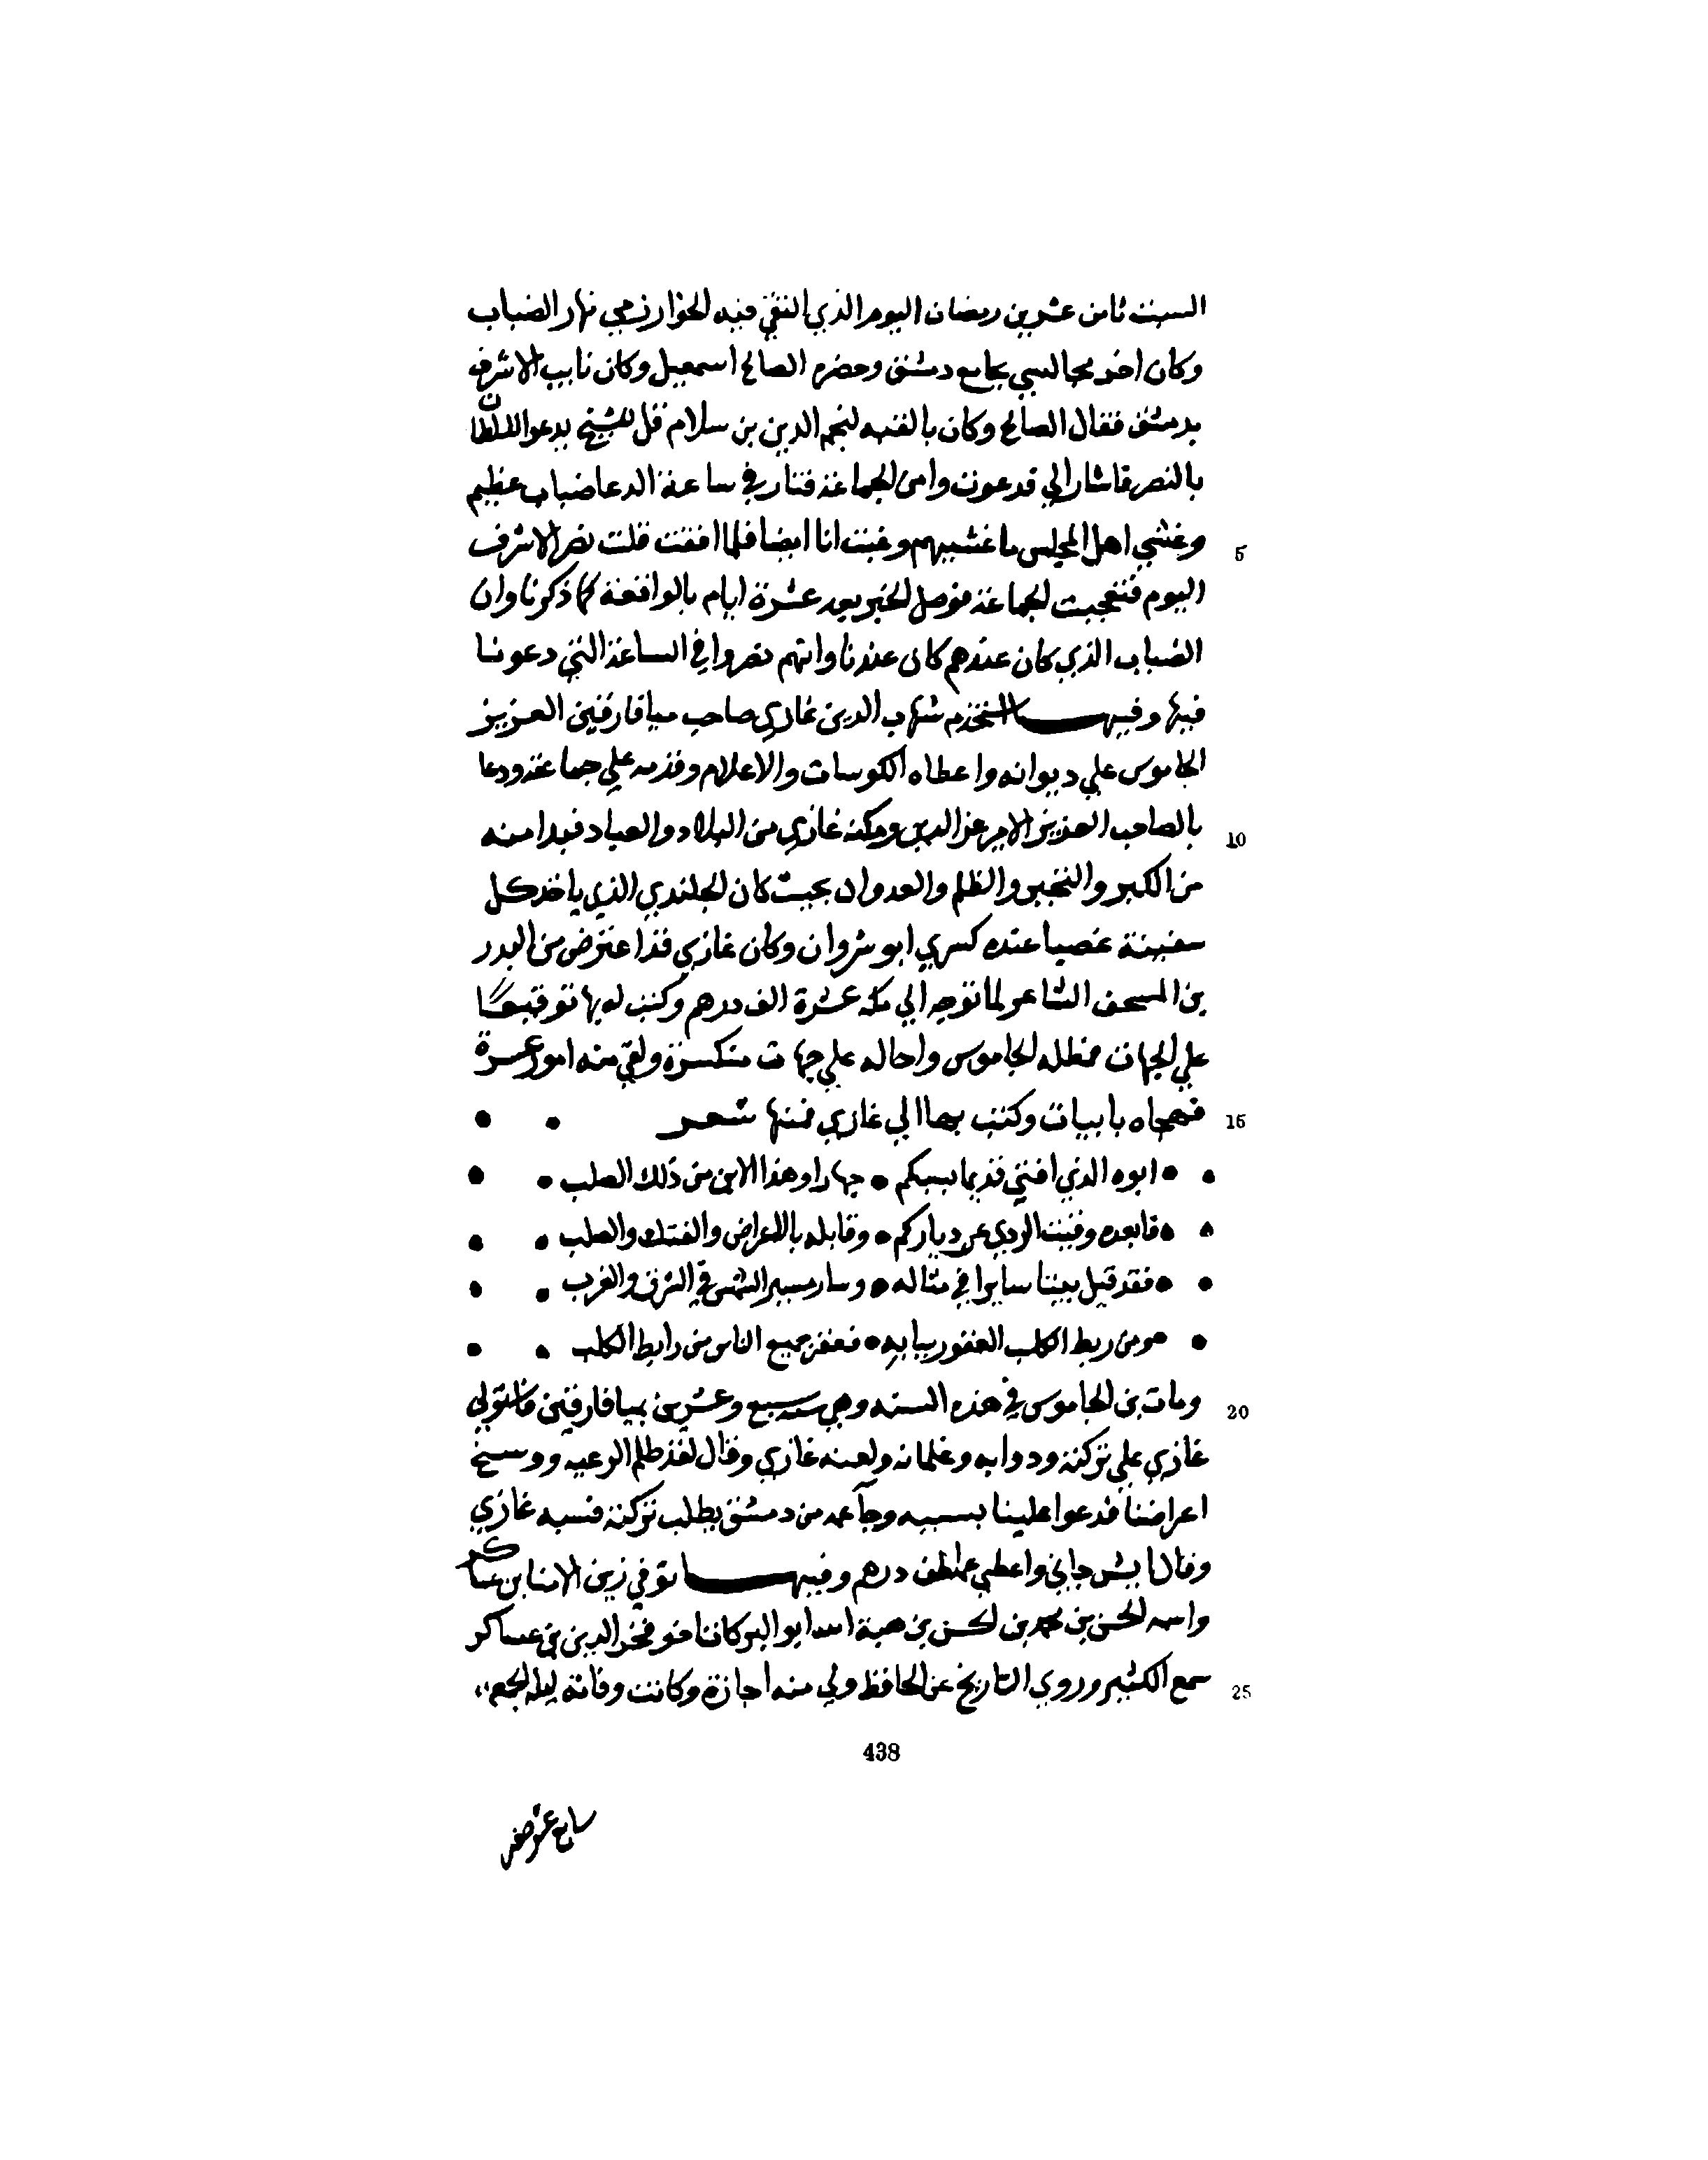 السبت ثامن عشرين رمضان اليوم الذي التقي فيه الخوارزمي نهار الضباب
وكان اخر مجالسي بجامع دمشق وحضره الصالح اسمعيل وكان نايب الاشرف
بدمشق فقال الصالح وكان بالقبه لنجم الدين بن سلام قل للشيخ يدعوا للسلطان
بالنصر فاشار الي فدعوت وامن الجماعة فثار في ساعة الدعا ضباب عظيم
5 وغشي اهل المجلس ما غشيهم وغبت انا ايضا فلما افقت قلت نصر الاشرف
اليوم فتعجبت الجماعة فوصل الخبر بعد عشرة ايام بالواقعة كما ذكرنا وان
الضباب الذي كان عندهم كان عندنا وانهم نصروا في الساعة التي دعونا
فيها وفيها استخدم شهاب الدين غازي صاحب ميافارقين العزيز
الجاموس علي ديوانه واعطاه الكوسات والاعلام وقدمه علي جماعة ودعا
10 بالصاحب العزيز الامير عز الدين ومكنه غازي من البلاد والعباد فبدا منه
من الكبر والتجبر والظلم والعدوان بحيث كان الجلندي الذي ياخذ كل
سفينة غصبا عنده كسري ابو شروان وكان غازي قد اعترض من البدر
بن المسجف الشاعر لما توجه الي مكه عشرة الف درهم وكتب له بها توقيعا
علي الجهات فمطله الجاموس واحاله علي جهات منكسرة ولقي منه امور عسرة
15 فهجاه بابيات وكتب بها الي غازي فمنها شعر
ابوه الذي افتي قديما بسبكم • جهارا وهذا الابن من ذلك الصلب
فابعده وقيت الردي عن دياركم • وقابله بالاعراض والفتك والصلب
فقد قيل بيتا سايرا في مثاله • وسار مسير الشمس في الشرق والغرب
ومن ربط الكلب العقور ببابه • فعقر جميع الناس من رابط الكلب
20 ومات بن الجاموس في هذه السنه وهي سنه سبع وعشرين بميافارقين فاستولي
غازي علي تركته ودوابه وغلمانه ولعنه غازي وقال لقد ظلم الرعيه ووسخ
اعراضنا فدعوا علينا بسببه وجآ عمه من دمشق يطلب تركته فسبه غازي
وقال ايش جابني واعطي درهم وفيها توفي زين الامنا بن عساكر
واسمه الحسن بن محمد بن الحسن بن هبة الله ابو البركات اخو فخر الدين بن عساكر
25 سمع الكثير وروي التاريخ عن الحافظ ولي منه اجازة وكانت وفاته ليله الجمعه
438
سابع عشر صفر